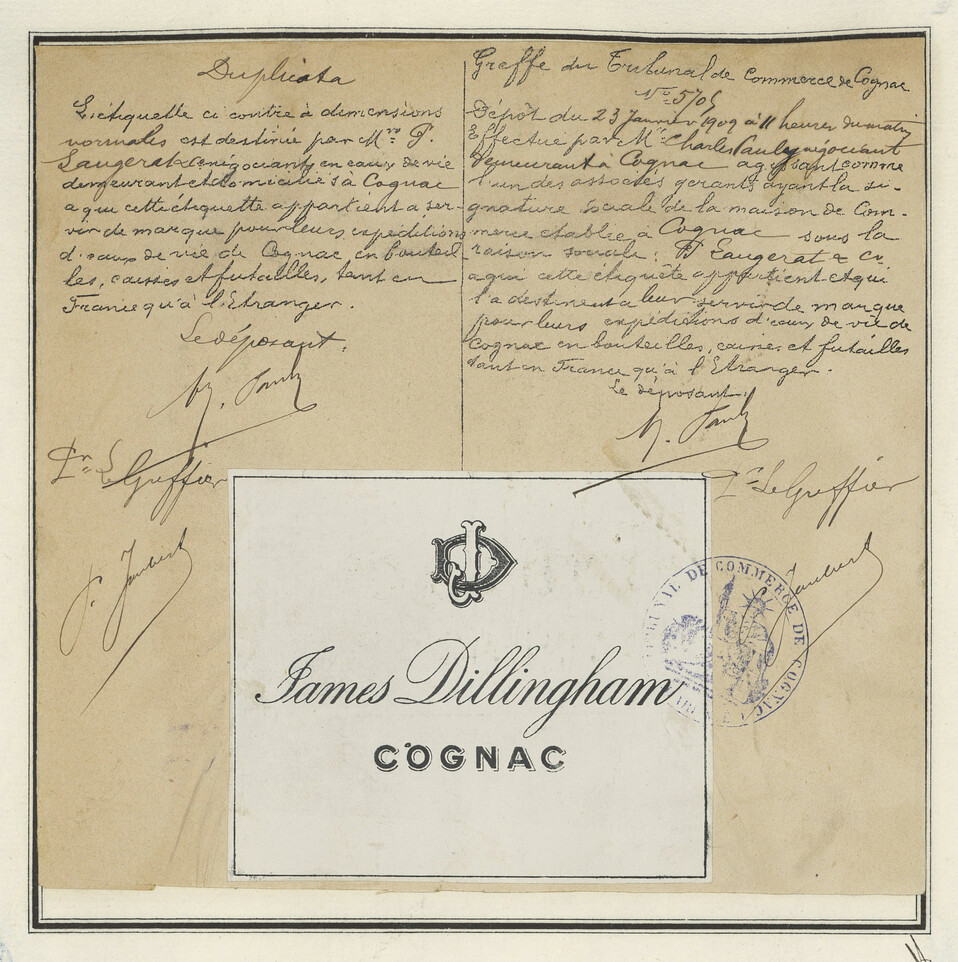 Duplicata
L'étiquette ci contre à dimensions
normales est destiné par Mrs P.
Laugerat & Cie négociants en eaux de vie
demeurant et domiciliés à Cognac
a qui cette étequette appartient a ser-
vir de marque pour leurs expéditions
d'eaux de vie de Cognac, en bouteil-
les, caisses et futailles, tant en
France qu'à l'Etranger.
Le déposant.
Pr Le Greffier
J. Jaubert
Greffe du Tribunal de Commerce de Cognac
No 5705
Dépôt du 23 Janvier 1909 à 11 heures du matin
Effectué par Mr Charles Pauly négociant
demeurant à Cognac agissant comme
l'un des associés gérants ayant la si-
gnature sociale de la maison de Com-
merce etablie à Cognac sous la
raison sociale: P Laugerat & Cie
a qui cette étiquête appartient et qui
l'a destinent a leur servir de marque
pour leurs expéditions d'eaux de vie de
Cognac en bouteilles, caisses et futailles
tant en France qu'à l'Etranger.
Le déposant.
Pr Le Greffier
Jaubert
JD
James Dillingham
COGNAC
TRIBUNAL DE COMMERCE DE COGNAC